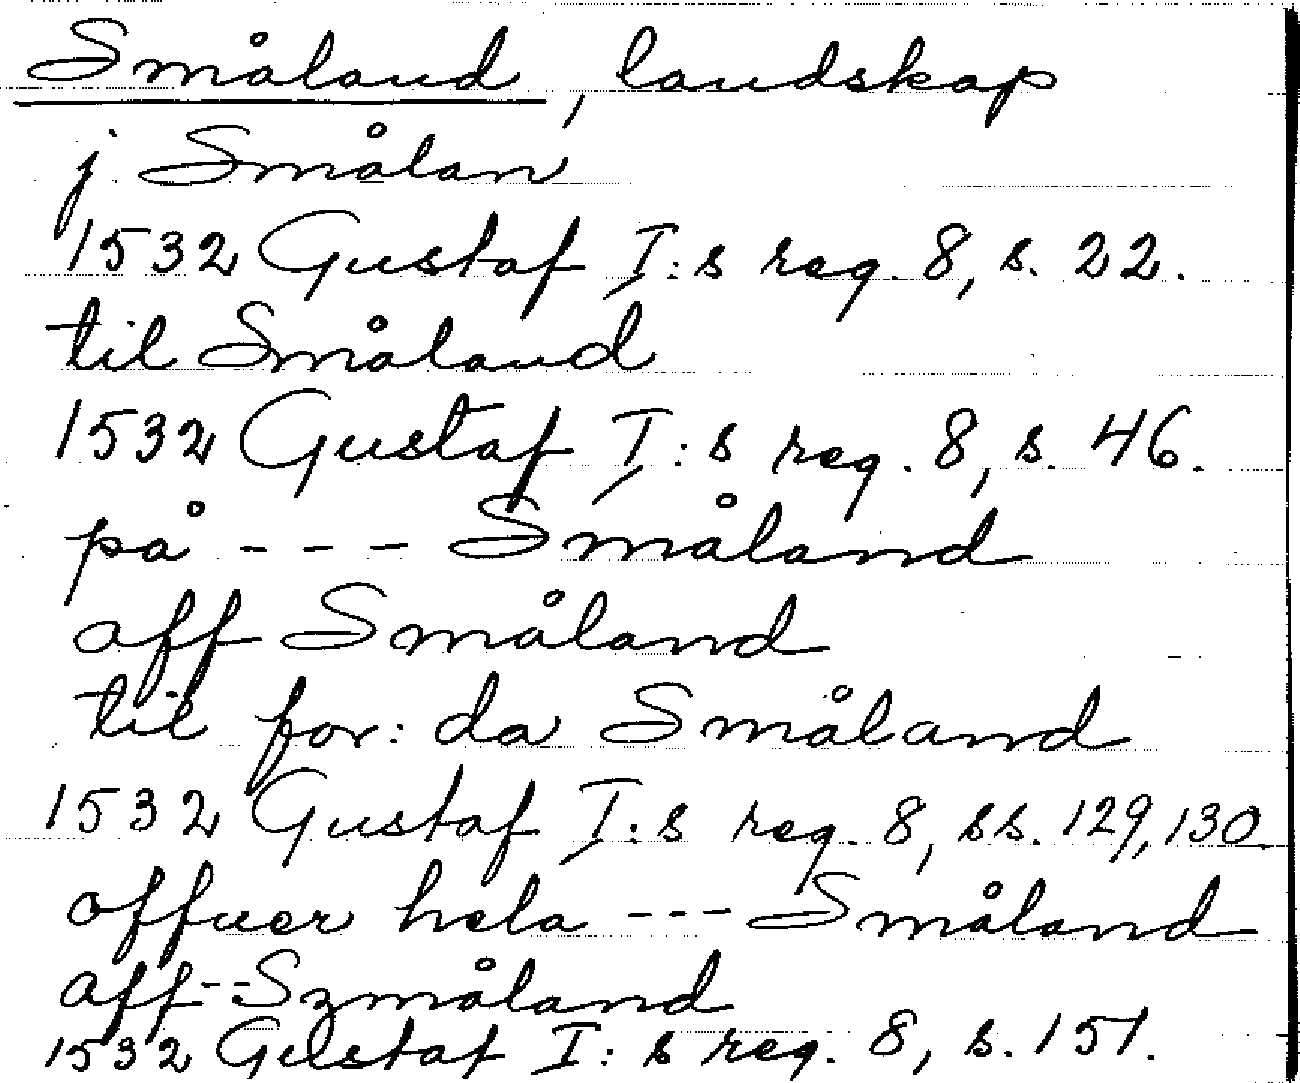 Småland, landskap
j Smålan
1532 Gustaf I:s reg. 8, s. 22.
til Småland
1532 Gustaf I:s reg. 8, s. 46.
på - - - Småland
aff Småland
til for: da Småland
1532 Gustaf I:s reg. 8, ss. 129, 130.
offuer hela - - - Småland
aff - - Szmåland
1532 Gustaf I:s reg. 8, s. 151.